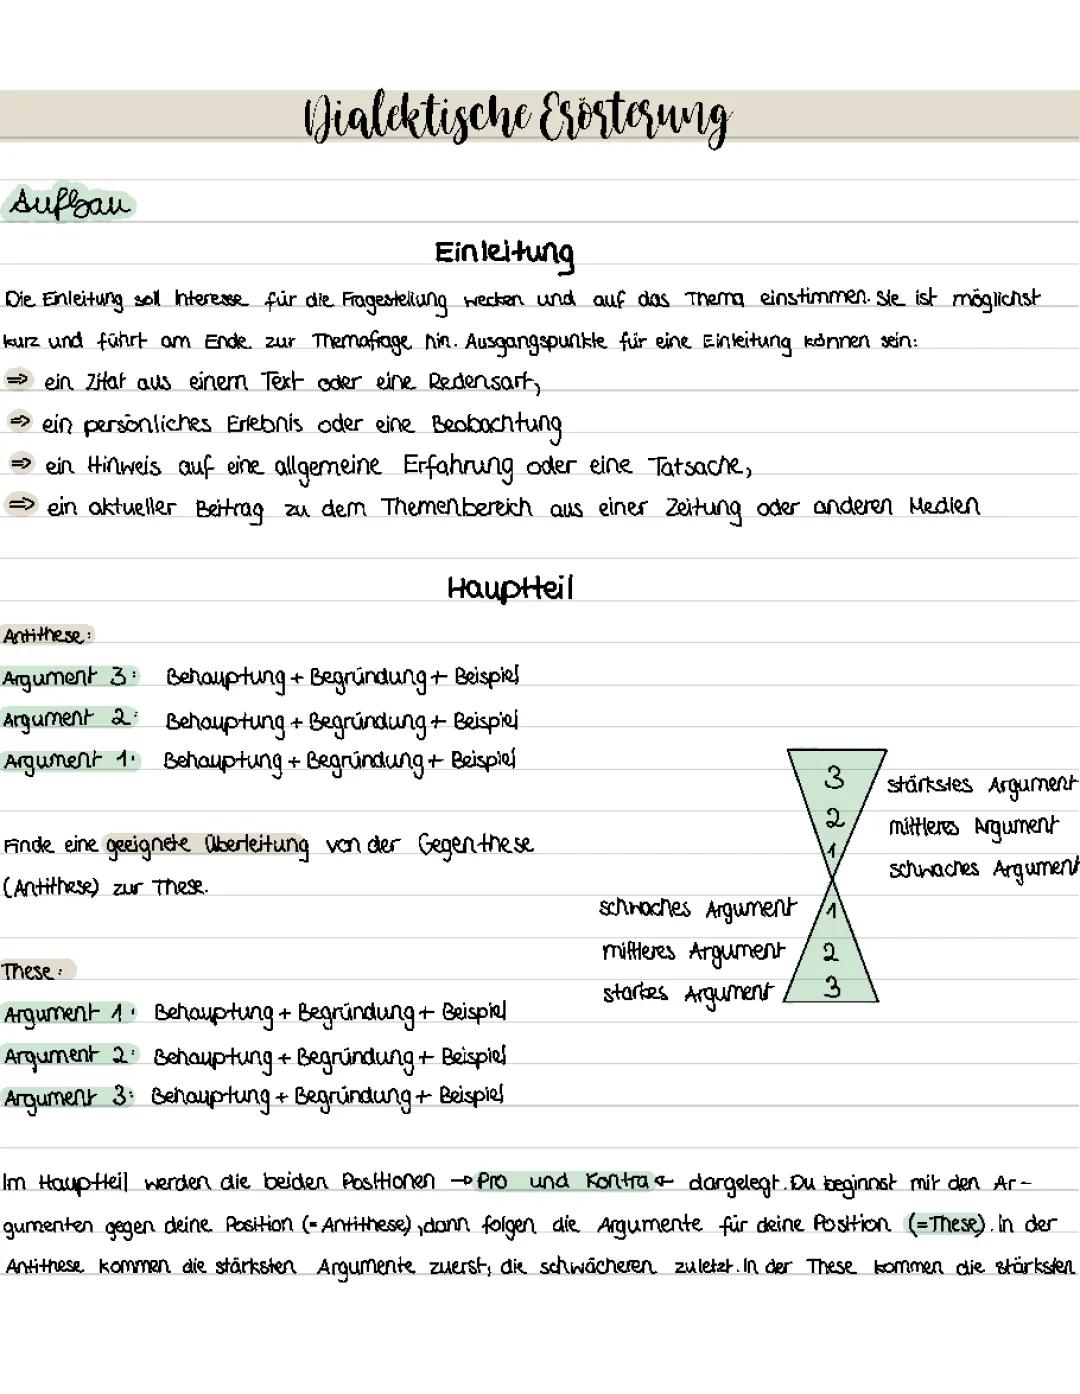 Dialektische Erörterung
Aufbau
Einleitung
Die Einleitung soll Interesse für die Fragestellung wecken und auf das Thema einstimmen. Sie ist möglichst
kurz und führt am Ende zur Themafrage hin. Ausgangspunkte für eine Einleitung können sein:
⇒ ein Zitat aus einem Text oder eine Redensart,
⇒ ein persönliches Erlebnis oder eine Beobachtung
⇒ ein Hinweis auf eine allgemeine Erfahrung oder eine Tatsache,
⇒ ein aktueller Beitrag zu dem Themenbereich aus einer Zeitung oder anderen Medien
Hauptteil
Antithese:
Argument 3: Behauptung + Begründung + Beispiel
Argument 2: Behauptung + Begründung + Beispiel
Argument 1: Behauptung + Begründung + Beispiel
3 stärkstes Argument
2 mittleres Argument
1 schwaches Argument
Finde eine geeignete Überleitung von der Gegenthese
(Antithese) zur These.
schwaches Argument 1
mittleres Argument 2
starkes Argument 3
These:
Argument 1: Behauptung + Begründung + Beispiel
Argument 2: Behauptung + Begründung + Beispiel
Argument 3: Behauptung + Begründung + Beispiel
Im Hauptteil werden die beiden Positionen → Pro und Kontra ← dargelegt. Du beginnst mit den Ar-
gumenten gegen deine Position (= Antithese), dann folgen die Argumente für deine Position (=These). In der
Antithese kommen die stärksten Argumente zuerst, die schwächeren zuletzt. In der These kommen die stärksten